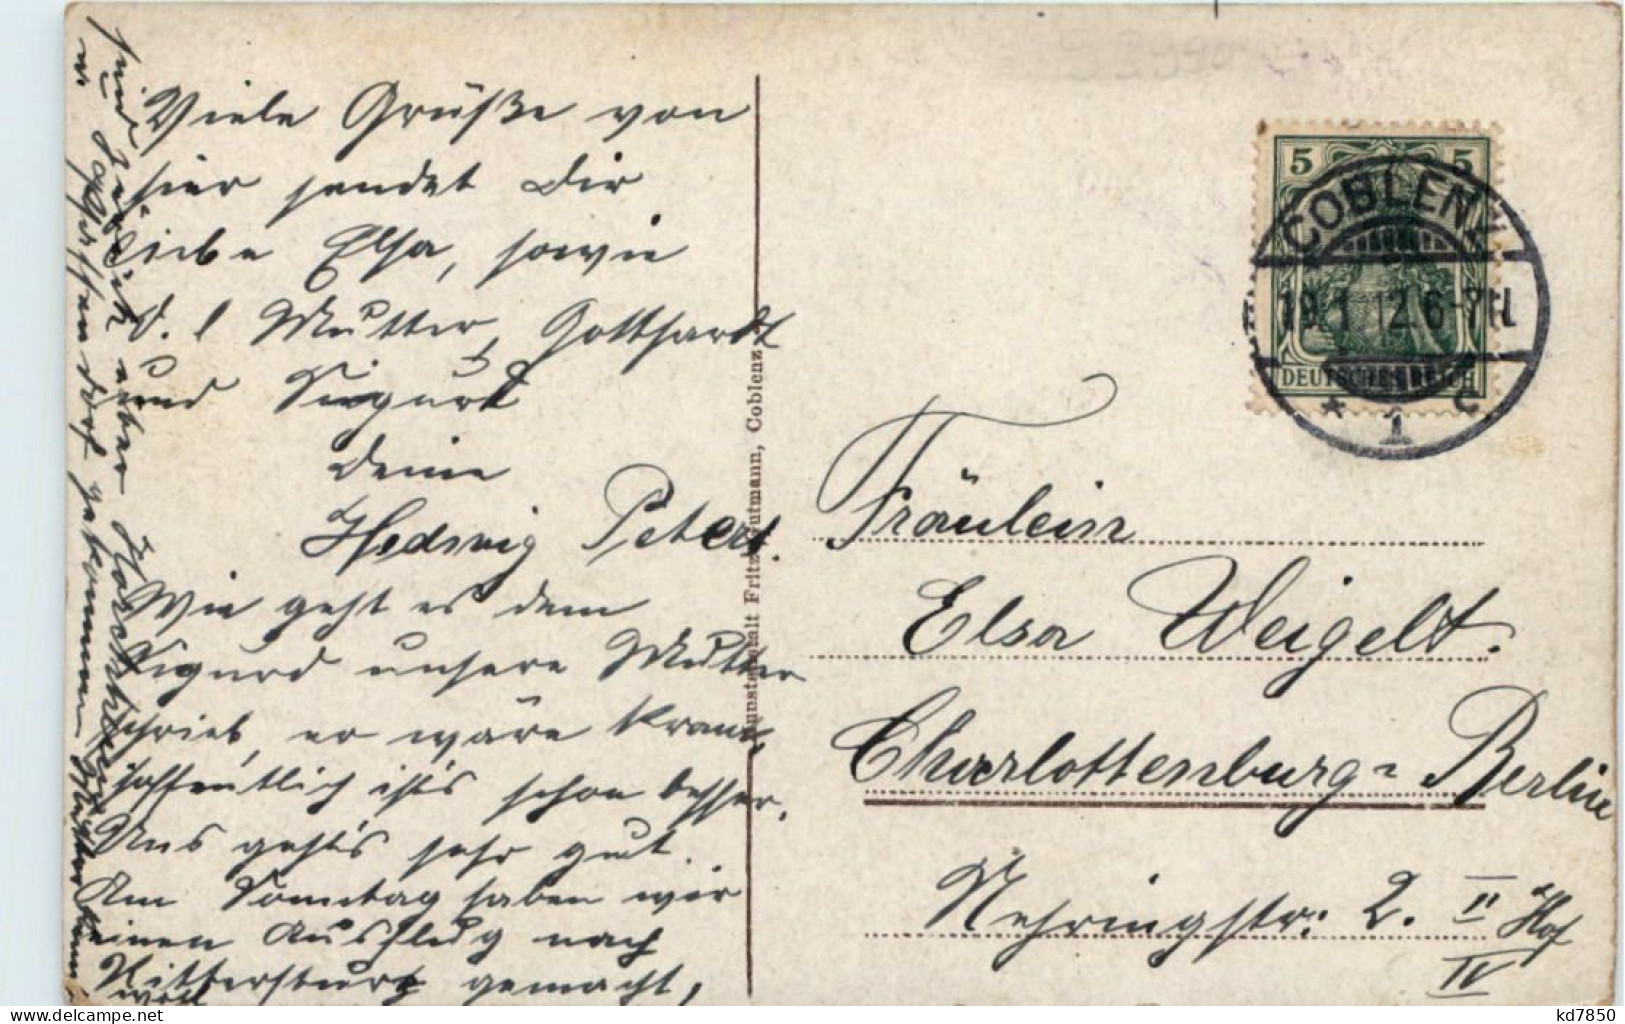 Viele Grüße von
hier sendet Dir
liebe Elsa, sowie
d. l Mutter, Gotthardt
und Sigurd
Deine
Hedwig Peters.
Wie geht es dem
Sigurd unsere Mutter
schrieb, er wäre krank,
hoffentlich ist's schon besser.
Uns geht's sehr gut.
Am Sonntag haben wir
einen Ausflug nach
gemacht,
sind zurück über
gekommen
Kunstanstalt Fritz Gutmann, Coblenz
5 5
DEUTSCHES REICH
COBLENZ
19.1.12.6-7N.
* 1 c
Fräulein
Elsa Weigelt.
Charlottenburg-Berlin
Nehringstr: 2. II Hof
IV
delcampe.net
kd7850